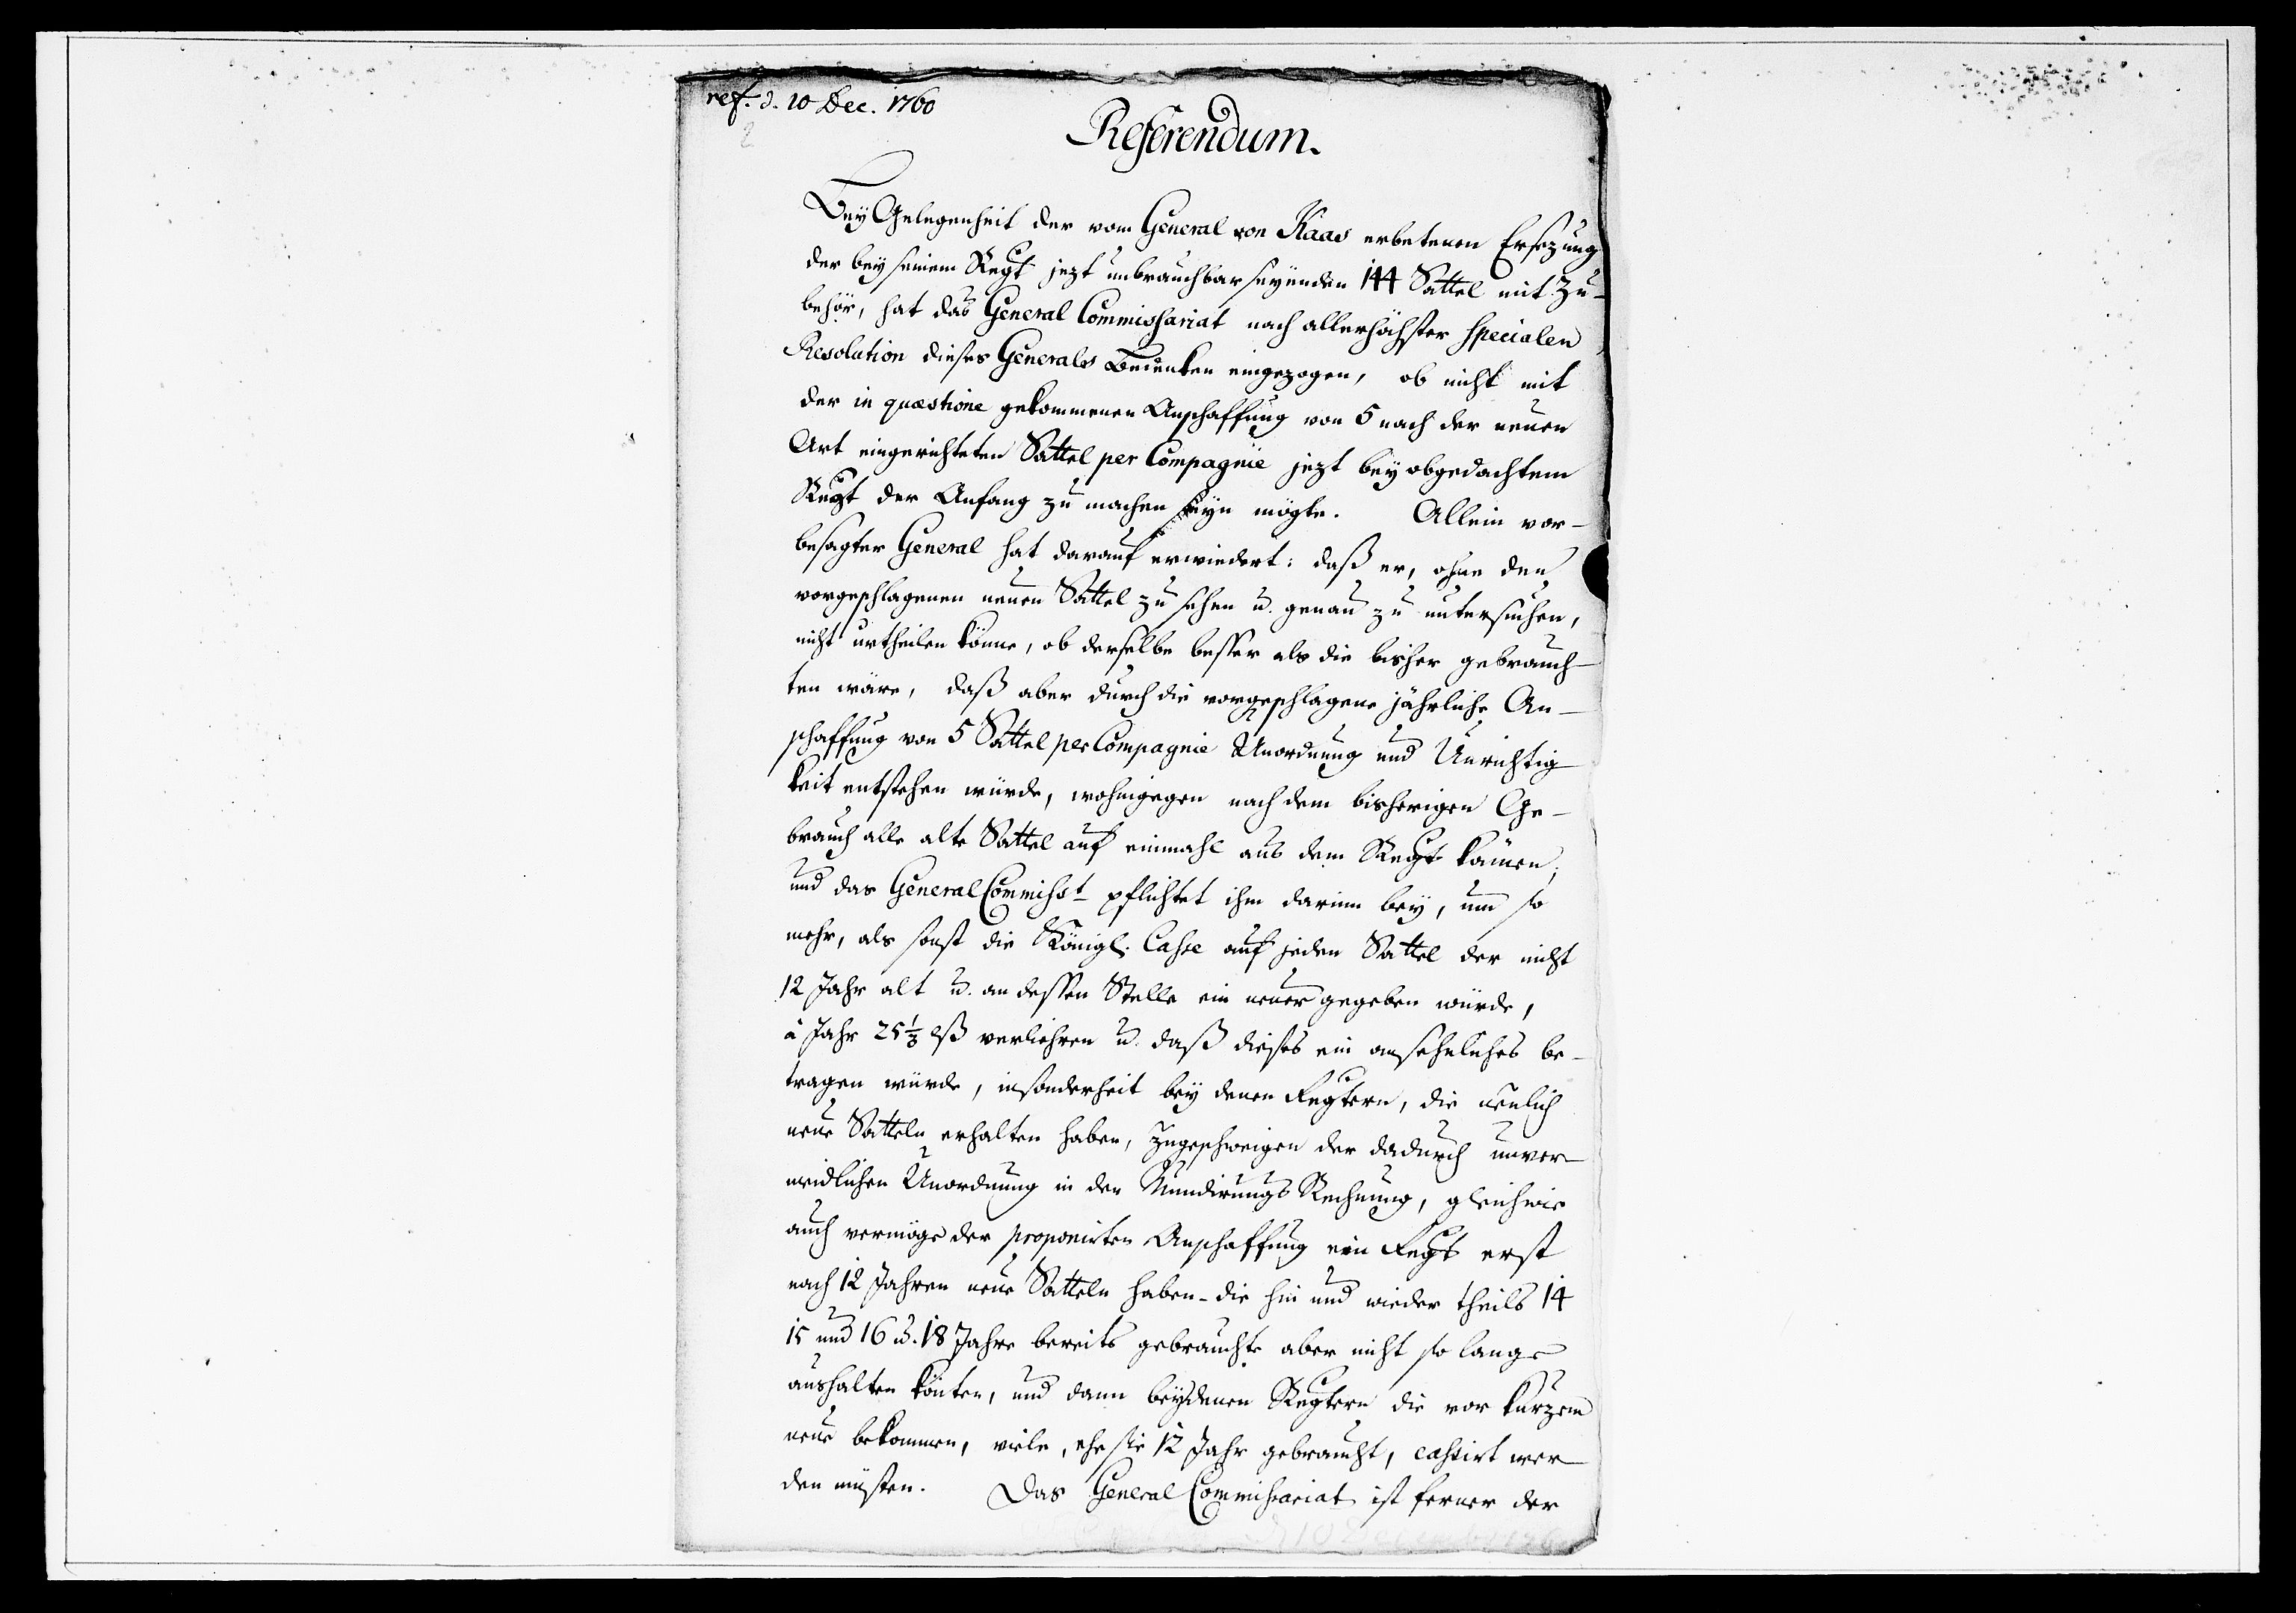 ref. d. 10 Dec. 1760
2
Referendum.
Bey Gelegenheit der vom General von Kaas erbetenen Ersezung
der bey seinem Regt jezt unbrauchbar seyenden 144 Sattel mit Zu-
behör, hat das General Commissariat nach allerhöchster specialen
Resolution dieses Generals Bedenken eingezogen, ob nicht mit
der in quæstione gekommenen Anschaffung von 5 nach der neuen
Art eingerichteten Sattel per Compagnie jezt bey obgedachtem
Regt der Anfang zu machen seyn mögte. Allein vor-
besagter General hat darauf erwiedert: daß er, ohne den
vorgeschlagenen neuen Sattel zu sehen u. genau zu untersuchen,
nicht urtheilen könne, ob derselbe besser als die bisher gebrauch-
ten wäre, daß aber durch die vorgeschlagene jährliche An-
schaffung von 5 Sattel per Compagnie Unordnung und Unrichtig-
keit entstehen würde, wohingegen nach dem bisherigen Ge-
brauch alle alte Sattel auf einmahl aus dem Regt kämen;
und das General Commisst pflichtet ihm darinn bey, um so
mehr, als sonst die Königl. Casse auf jeden Sattel der nicht
12 Jahr alt u. an dessen Stelle ein neuer gegeben würde,
à Jahr 25 1/3 lß verliehren u. daß dieses ein ansehnliches be-
tragen würde, insonderheit bey denen Regtern, die neulich
neue Satteln erhalten haben, zugeschweigen der dadurch unver-
meidlichen Unordnung in der Mundirungs Rechnung, gleichwie
auch vermöge der proponirten Anschaffung ein Regt erst
nach 12 Jahren neue Satteln haben - die hin und wieder theils 14
15 und 16 u. 18 Jahre bereits gebrauchte aber nicht so lange
aushalten könten, und dann bey denen Regtern die vor kurzem
neue bekommen, viele, ehe sie 12 Jahr gebraucht, cassirt wer-
den müsten. Das General Commissariat ist ferner der